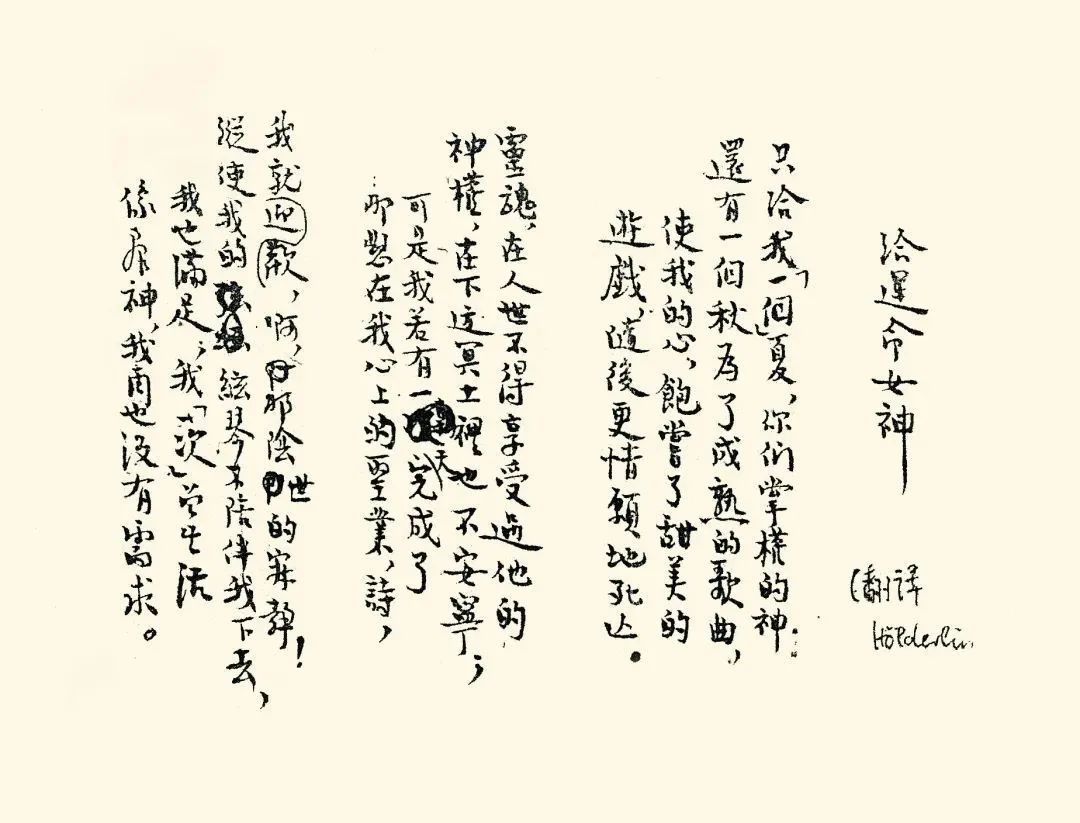 給運命女神
(翻譯
Hölderlin
只給我「一個」夏,你們掌權的神:
還有一個秋為了成熟的歌曲,
使我的心,飽嘗了甜美的
遊戲,隨後更情願地死亡。
靈魂,在人世不得享受過他的
神權,在下這冥土裡也不安寧;
可是我若有一天完成了
那懸在我心上的聖業,詩,
我就迎歡,啊,那陰世的寂靜!
縱使我的絃琴不陪伴我下去,
我也滿足;我「一次」曾生活
像眾神,我再也沒有需求。